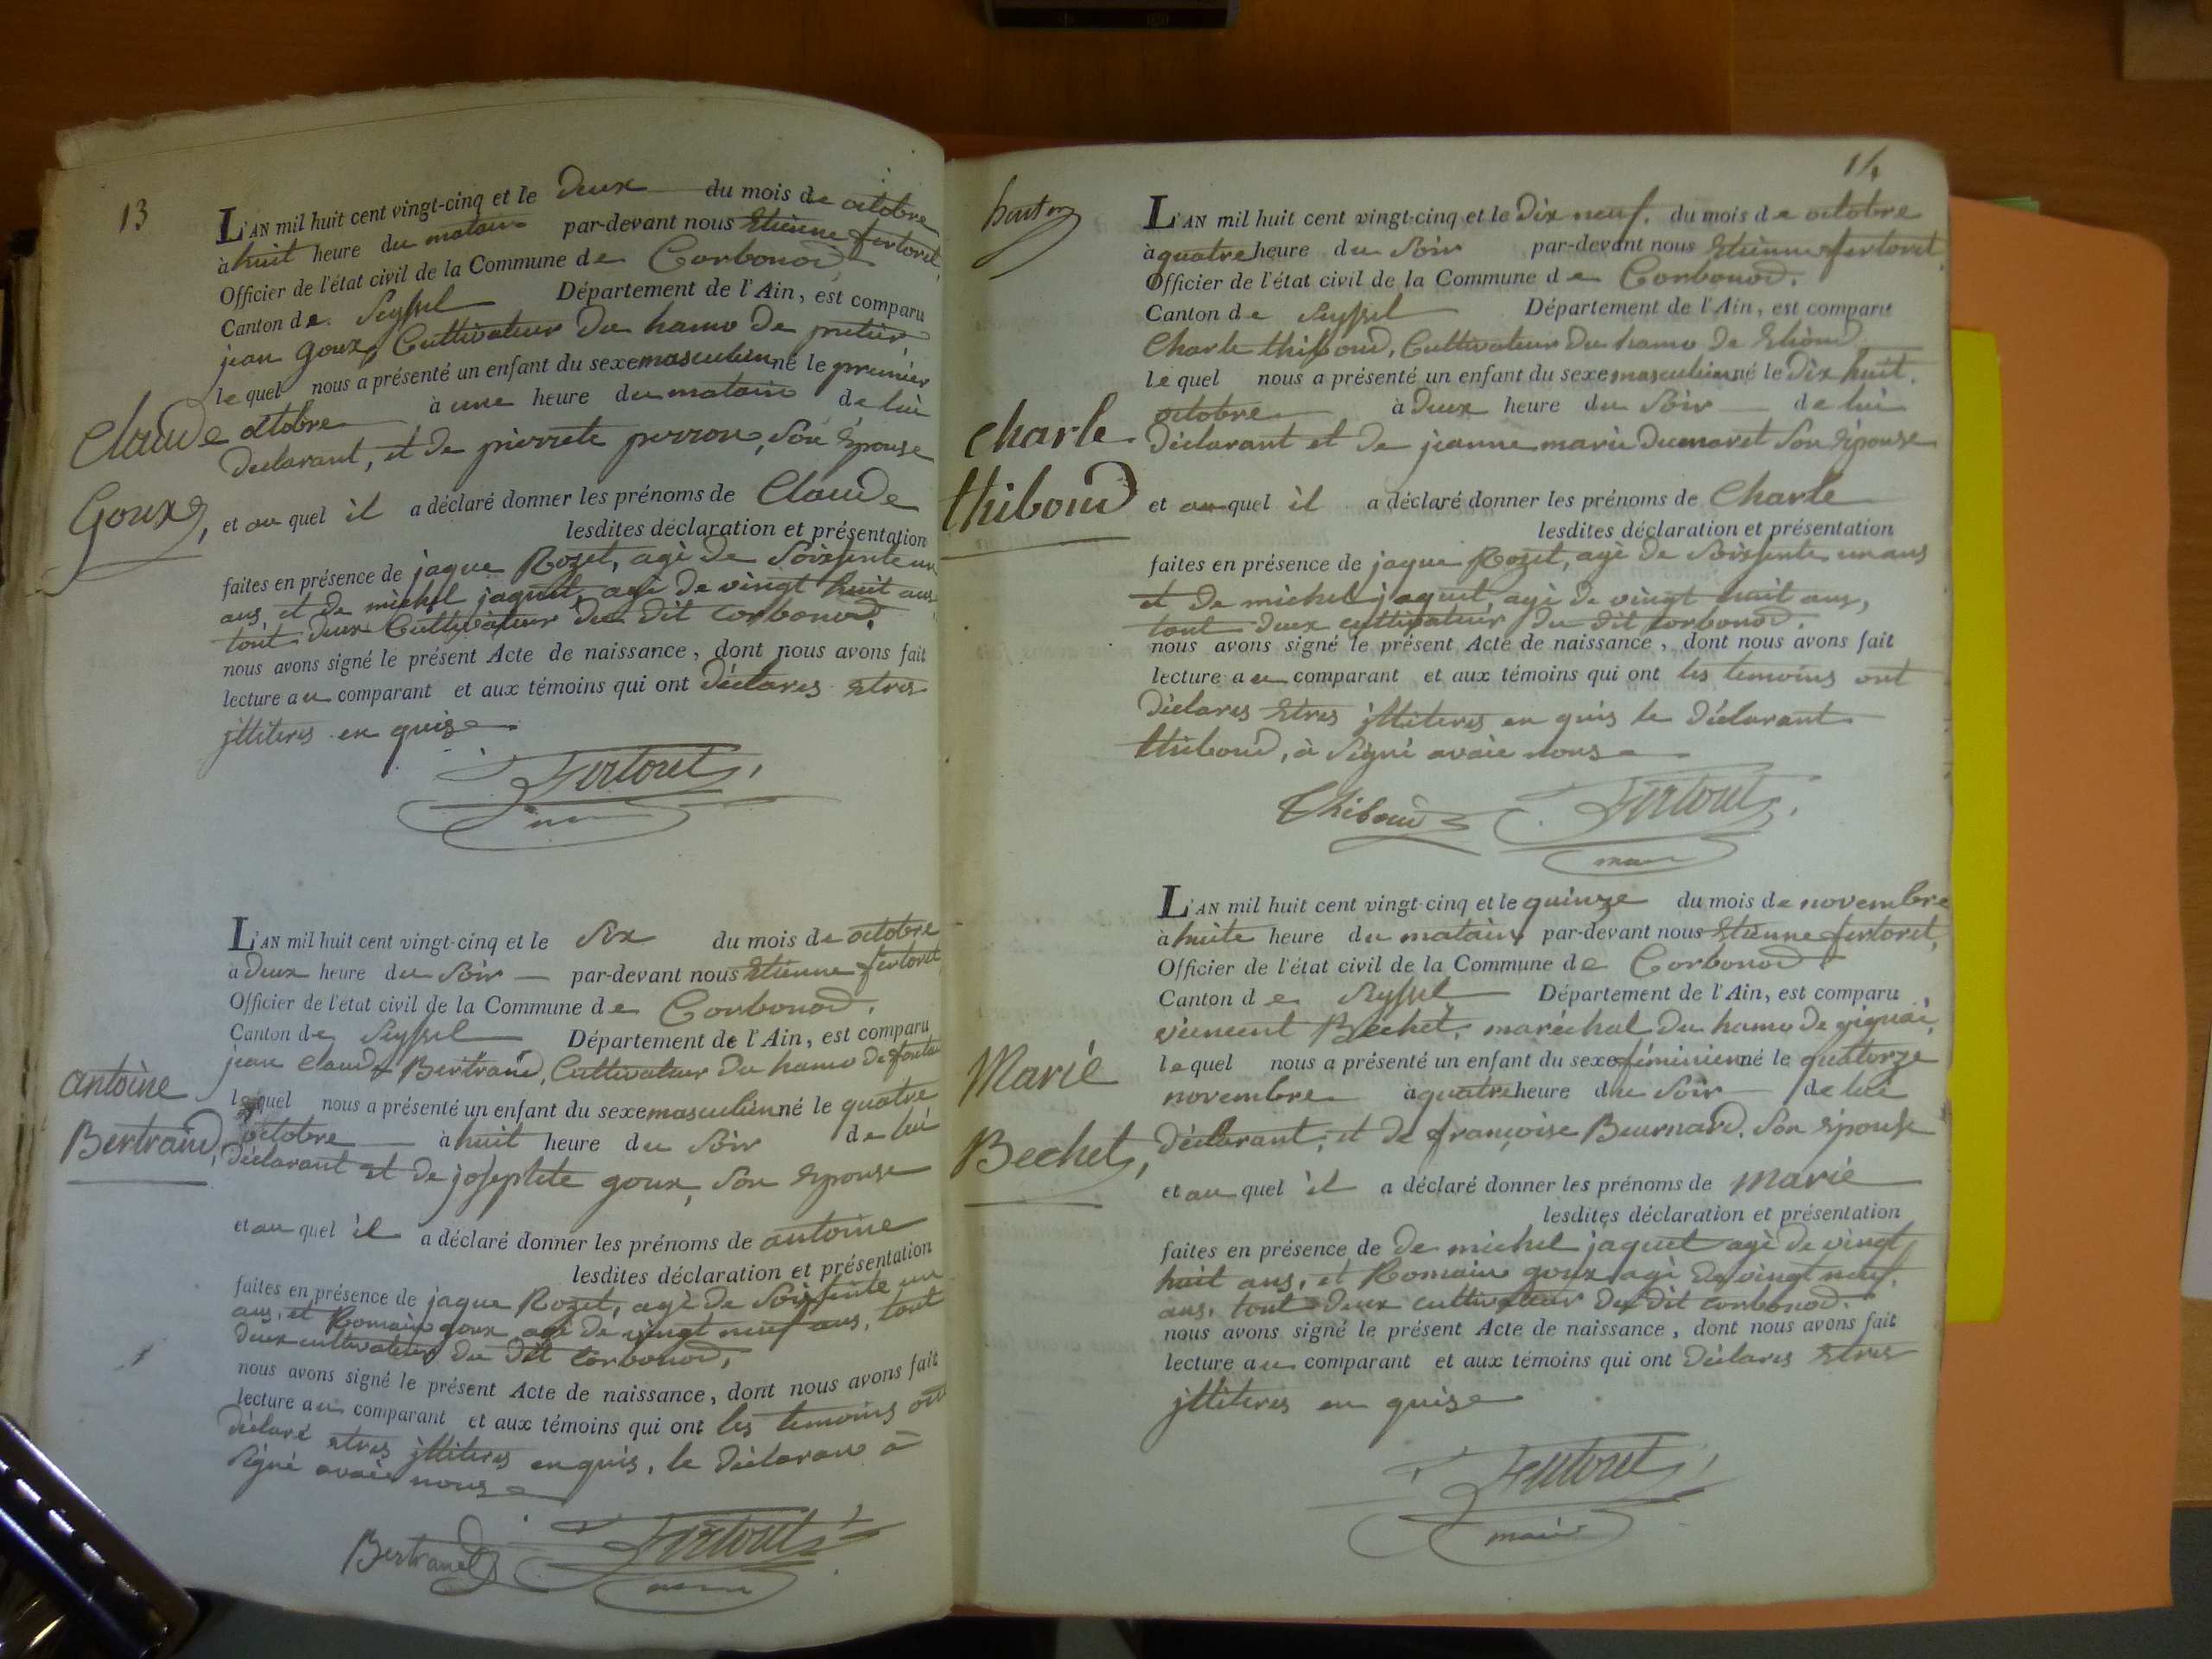 13
L'AN mil huit cent vingt-cinq et le deux du mois de octobre
à huit heure du matain par-devant nous Etienne fertoret,
Officier de l'état civil de la Commune de Corbonod,
Canton de Seyssel Département de l'Ain, est comparu
jean Goux, Cultivateur du hamo de
le quel nous a présenté un enfant du sexe masculien né le premier
octobre à une heure du matain de lui
declarant, et de pierrete perron, son Epouse
Claude
Goux,
et au quel il a déclaré donner les prénoms de Claude
lesdites déclaration et présentation
faites en présence de jaque Rozet, agé de Soissente un
ans, et de michel jaquet, agé de vingt huit ans
tout deux Cultivateur du dit corbonod.
nous avons signé le présent Acte de naissance, dont nous avons fait
lecture au comparant et aux témoins qui ont déclares Etres
jlliteres en quise
Fertoret,
L'AN mil huit cent vingt-cinq et le Six du mois de octobre
à deux heure du Soir par-devant nous Etienne fertoret
Officier de l'état civil de la Commune de Corbonod,
Canton de Seyssel Département de l'Ain, est comparu
jean claude Bertrand, Cultivateur du hamo de
le quel nous a présenté un enfant du sexe masculien né le quatre
octobre à huit heure du Soir de lui
déclarant et de josephte goux, son Epouse
antoine
Bertrand,
et au quel il a déclaré donner les prénoms de antoine
lesdites déclaration et présentation
faites en présence de jaque Rozet, agé de Soissente un
ans, et Romain goux agé de vingt neuf ans, tout
deux cultivateur du dit corbonod,
nous avons signé le présent Acte de naissance, dont nous avons fait
lecture au comparant et aux témoins qui ont les temoins ont
déclaré etres jlliteres en quis, le déclaran à
Signé avaie nous
Bertrand Fertoret
14
L'AN mil huit cent vingt-cinq et le Dix neuf. du mois de octobre
à quatre heure du Soir par-devant nous Etienne fertoret,
Officier de l'état civil de la Commune de Corbonod.
Canton de Seyssel Département de l'Ain, est comparu
Charle thiboud, Cultivateur du hamo de
le quel nous a présenté un enfant du sexe masculien né le Dix huit.
octobre à deux heure du Soir de lui
déclarant et de jeanne marie dumaret son Epouse
charle
thiboud
et au quel il a déclaré donner les prénoms de Charle
lesdites déclaration et présentation
faites en présence de jaque Rozet, agé de Soissente un ans
et de michel jaquet, agé de vingt huit ans,
tout deux cultivateur du dit corbonod.
nous avons signé le présent Acte de naissance, dont nous avons fait
lecture au comparant et aux témoins qui ont les temoins ont
déclares Etres jlliteres en quis le déclarant
thiboud, à Signé avaie nous
Thiboud Fertoret,
L'AN mil huit cent vingt-cinq et le quinze du mois de novembre
à huite heure du matain par-devant nous Etienne fertoret,
Officier de l'état civil de la Commune de Corbonod.
Canton de Seyssel Département de l'Ain, est comparu
viencent Bechet, maréchal du hamo de
le quel nous a présenté un enfant du sexe féminien né le quatorze
novembre à quatre heure du Soir de lui
déclarant, et de françoise Beurnard. son Epouse
Marie
Bechet,
et au quel il a déclaré donner les prénoms de Marie
lesdites déclaration et présentation
faites en présence de de michel jaquet agé de vingt
huit ans, et Romain goux agé de vingt neuf.
ans. tout deux cultivateur du dit corbonod.
nous avons signé le présent Acte de naissance, dont nous avons fait
lecture au comparant et aux témoins qui ont déclares Etres
jlliteres en quise
Fertoret,
maire